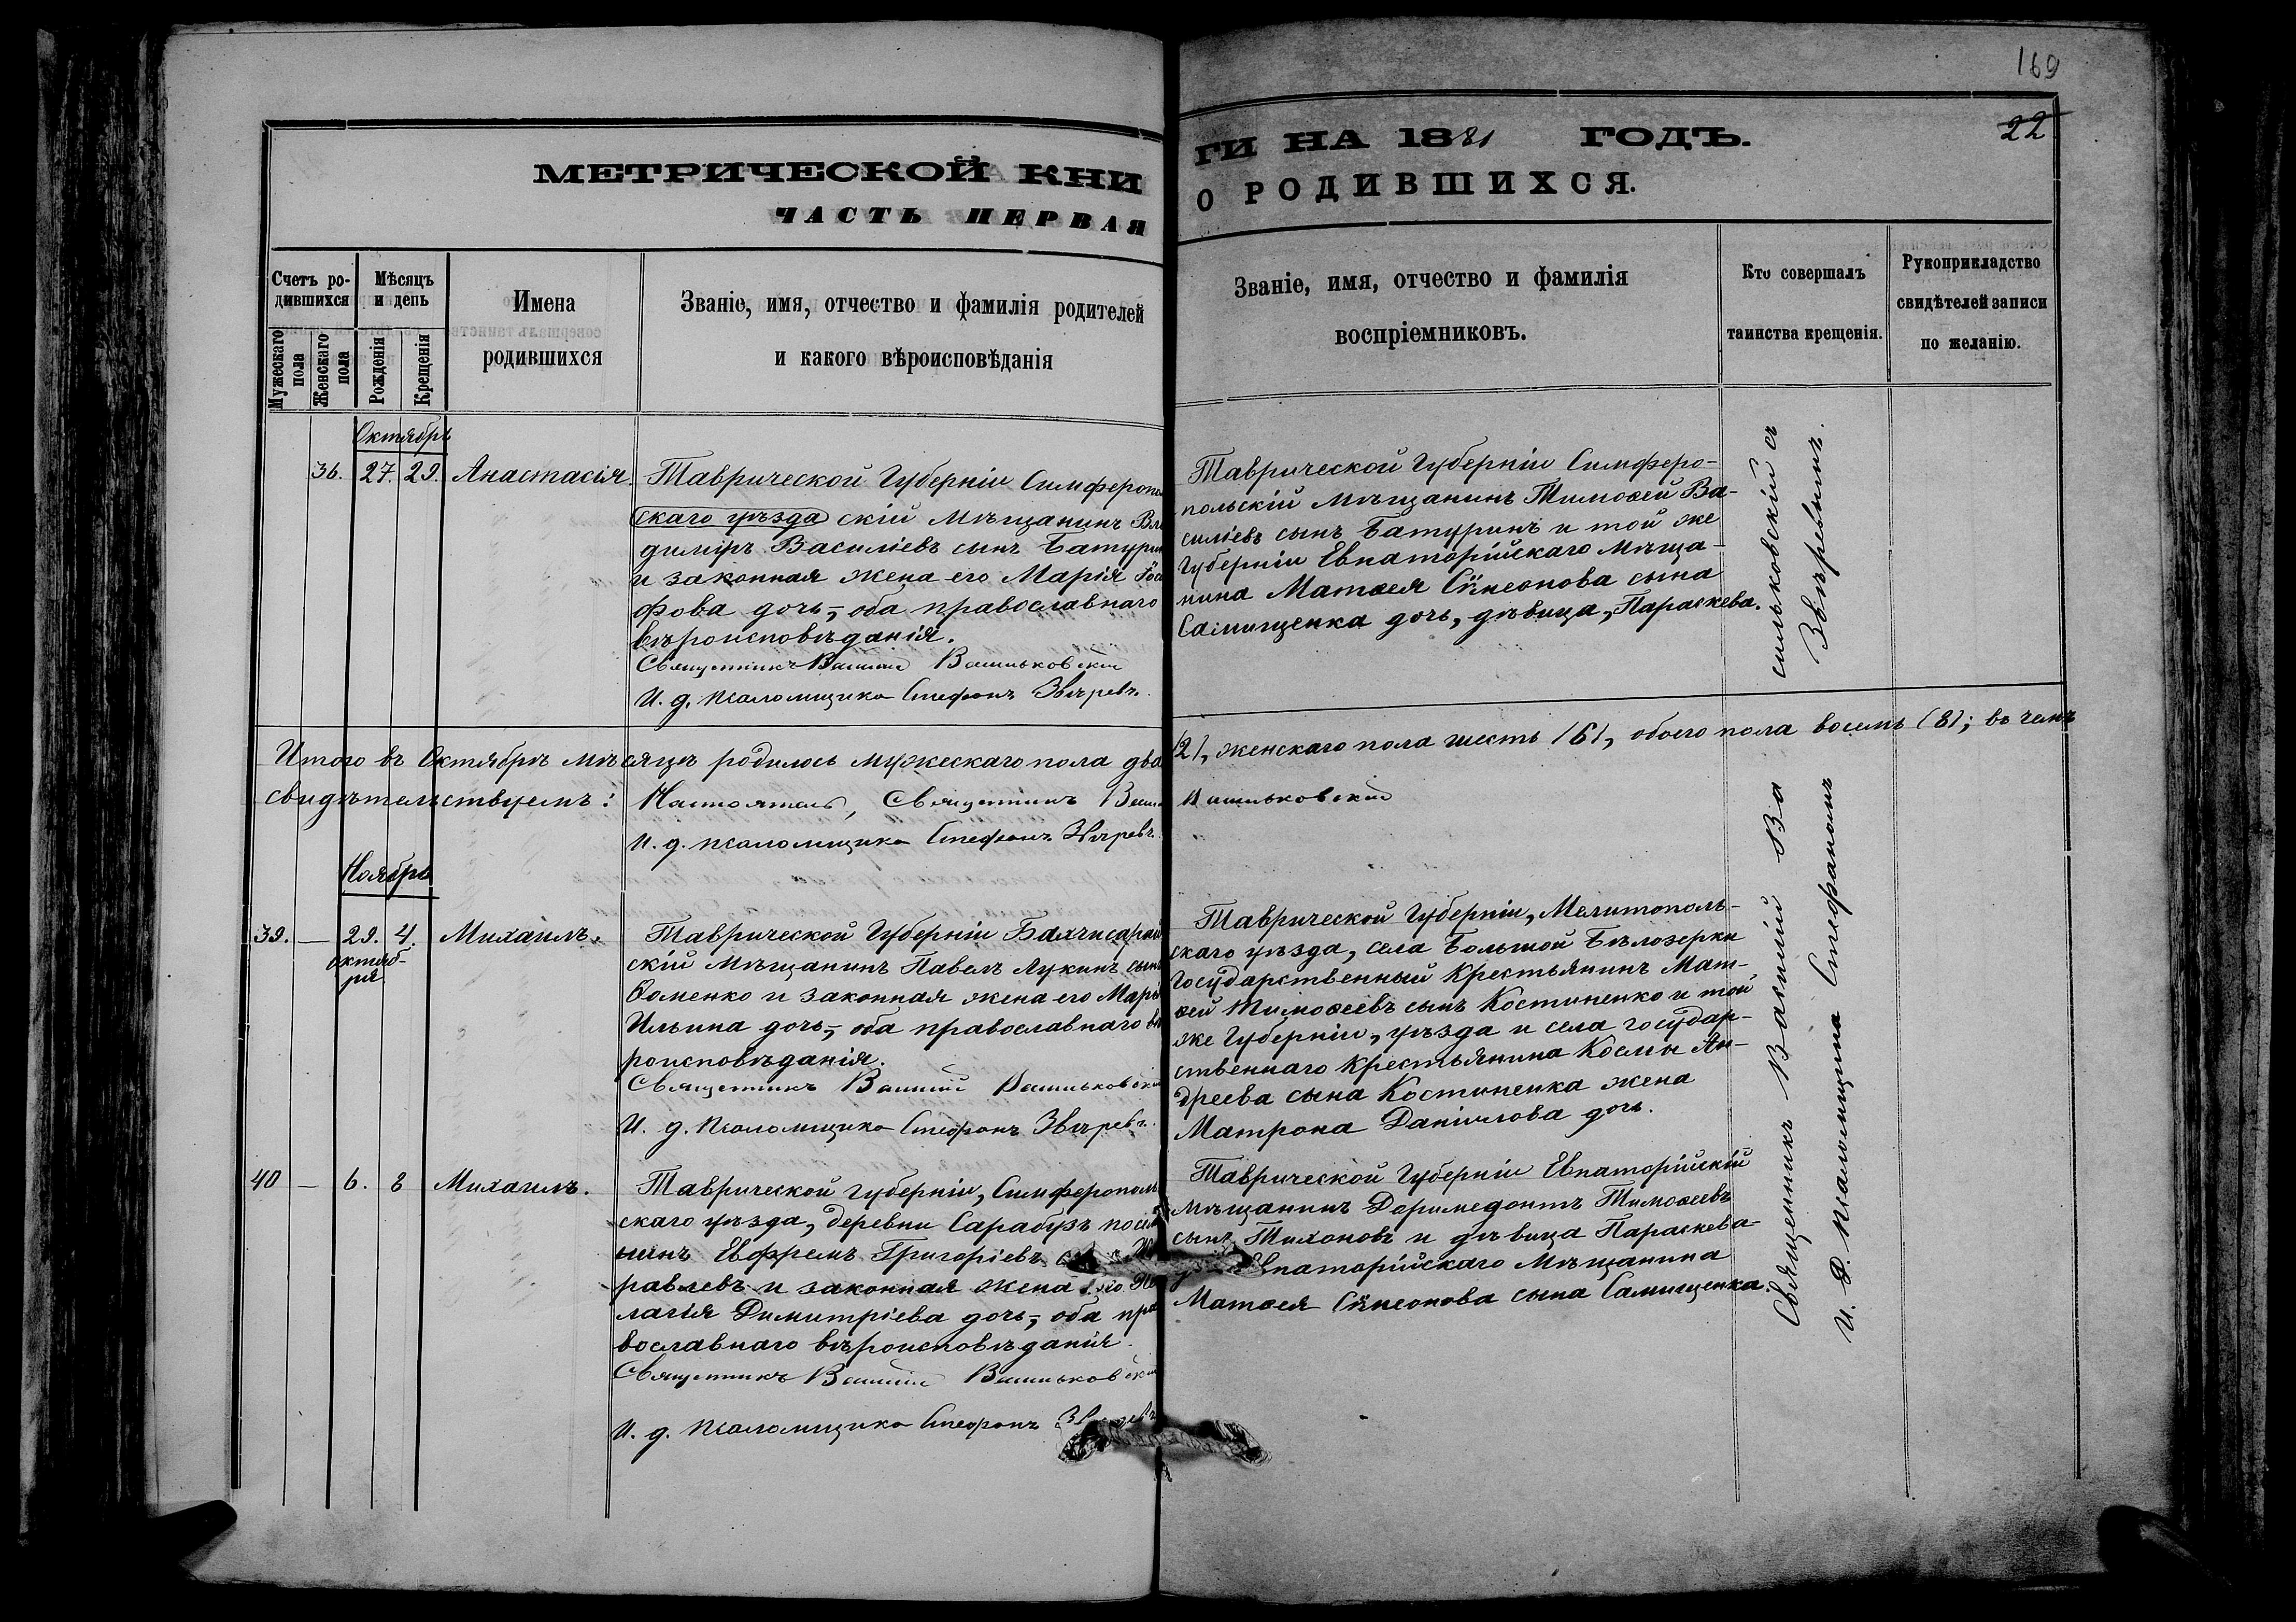 169
22
МЕТРИЧЕСКОЙ КНИ
ГИ НА 1881 ГОДЪ.
ЧАСТЬ ПЕРВАЯ
О РОДИВШИХСЯ.
Счетъ ро-
дившихся
Мужескаго
пола
Женскаго
пола
Мѣсяцъ
и день
Рожденія
Крещенія
Имена
родившихся
Званіе, имя, отчество и фамилія родителей
и какого вѣроисповѣданія
Званіе, имя, отчество и фамилія
воспріемниковъ.
Кто совершалъ
таинства крещенія.
Рукоприкладство
свидѣтелей записи
по желанію.
Октябрь
36. 27. 29. Анастасія.
Таврической Губерніи Симферопол
скаго уѣзда скій Мѣщанинъ Вла
димiръ Василіевъ сынъ Батурин
и законная жена его Марія Іоси
фова дочь,- оба православнаго
вѣроисповѣданія.
Священникъ Василій Васильковскій
И. д. псаломщика Стефанъ Звѣревъ.
Таврической Губерніи Симферо-
польскій мѣщанинъ Тимоѳей Ва-
силіевъ сынъ Батуринъ и той же
Губерніи Евпаторійскаго мѣща-
нина Матѳея Сѵмеонова сына
Самищенка дочь, дѣвица, Параскева.
сильковскій съ
Звѣревымъ.
Итого въ Октябрѣ мѣсяцѣ родилось мужескаго пола два
(2), женскаго пола шесть (6), обоего пола восемь (8); въ чемъ
свидѣтельствуемъ: Настоятель, Священникъ Васи
Васильковскій
И. д. псаломщика Стефанъ Звѣревъ.
Ноябрь
39. — 29. 4. Михаилъ.
октяб-
ря
Таврической Губерніи Бахчисарай
скій Мѣщанинъ Павелъ Лукинъ сынъ
Ѳоменко и законная жена его Марія
Ильина дочь,- оба православнаго вѣ
роисповѣданія.
Священникъ Василій Васильковскій
И. д. псаломщика Стефанъ Звѣревъ.
Таврической Губерніи, Мелитополь-
скаго уѣзда, села Большой Бѣлозерки
Государственный Крестьянинъ Мат-
ѳей Тимоѳеевъ сынъ Костиненко и той
же Губерніи, уѣзда и села государ-
ственнаго Крестьянина Космы Ан-
дреева сына Костиненка жена
Матрона Даніилова дочь.
40 — 6. 8 Михаилъ.
Таврической Губерніи, Симферополь
скаго уѣзда, деревни Сарабузъ посел
нинъ Евфремъ Григоріевъ с Жу
равлевъ и законная жена его Пе
лагія Димитріева дочь,- оба пра
вославнаго вѣроисповѣданія.
Священникъ Василій Васильковскій
И. д. псаломщика Стефанъ Звѣревъ
Таврической Губерніи Евпаторійскій
мѣщанинъ Доримедонтъ Тимоѳеевъ
сынъ Тихоновъ и дѣвица Параскева-
Евпаторійскаго Мѣщанина
Матѳея Сѵмеонова сына Самищенка.
Священникъ Василій Ва
И. д. псаломщика Стефаномъ